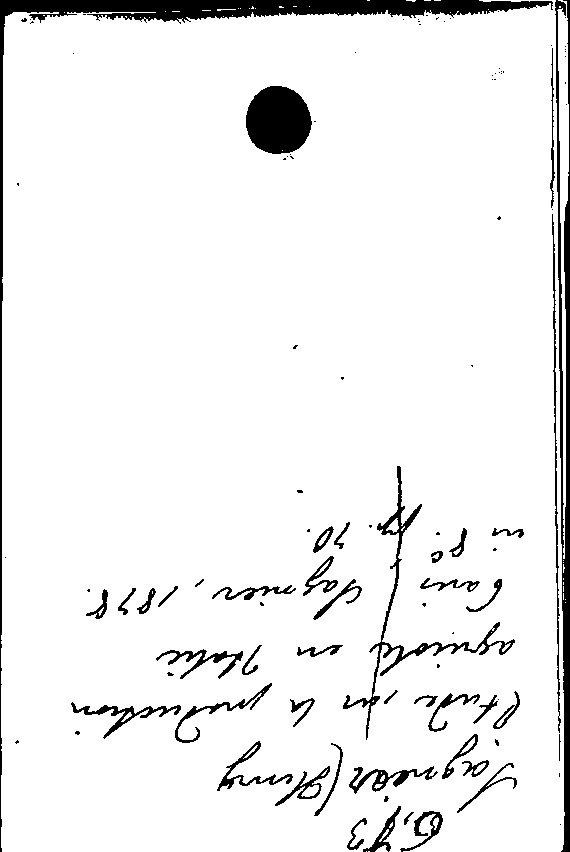 Sagnier (Henry
Etude sur la production
agricole en Italie
Paris, Sagnier, 1878.
in 8º. pp. 70.